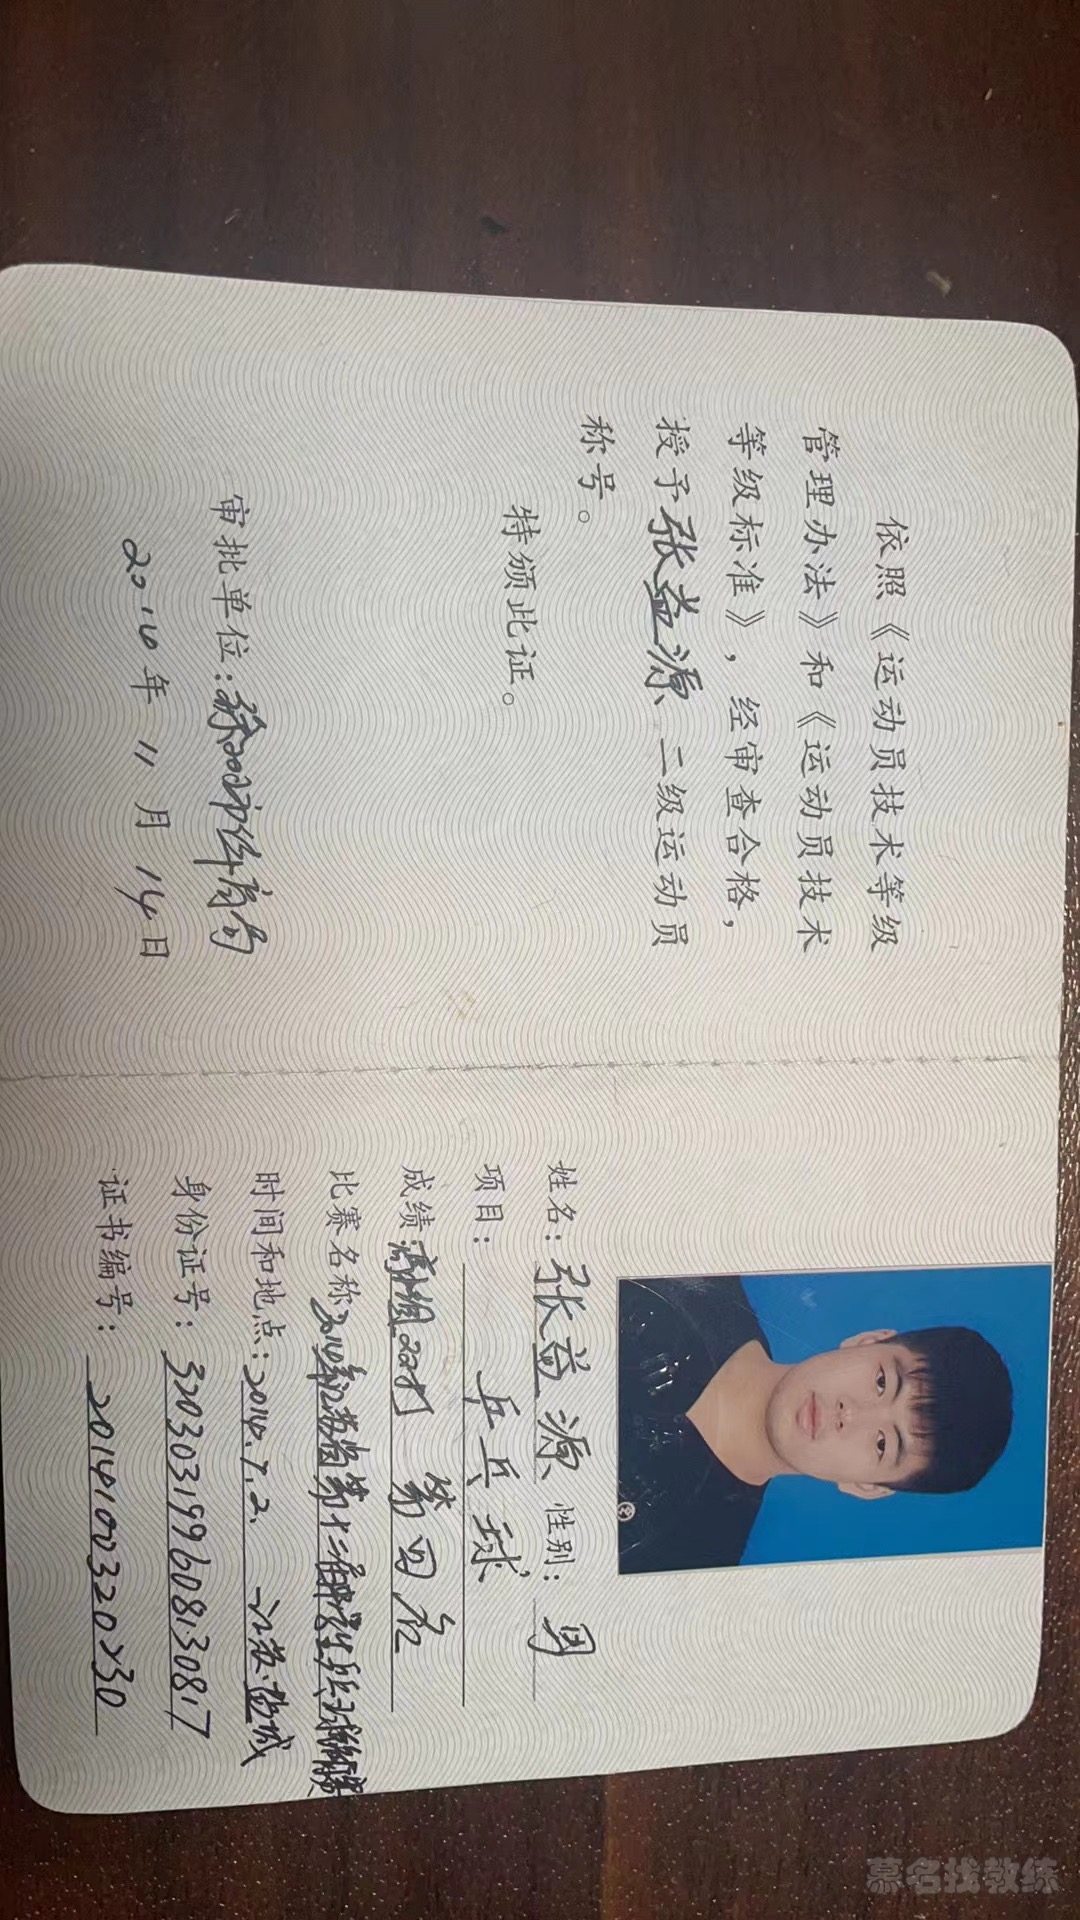 依照《运动员技术等级
管理办法》和《运动员技术
等级标准》，经审查合格，
授予张益源 二级运动员
称号。
特颁此证。
审批单位：徐州市体育局
2014年11月14日
姓名：张益源 性别：男
项目：乒乓球
成绩：双打 第四名
比赛名称 2014年江苏省第十二届中学生乒乓球锦标赛
时间和地点：2014.7.2. 江苏盐城
身份证号：320303199608130817
证书编号：2014100320230
慕名找教练